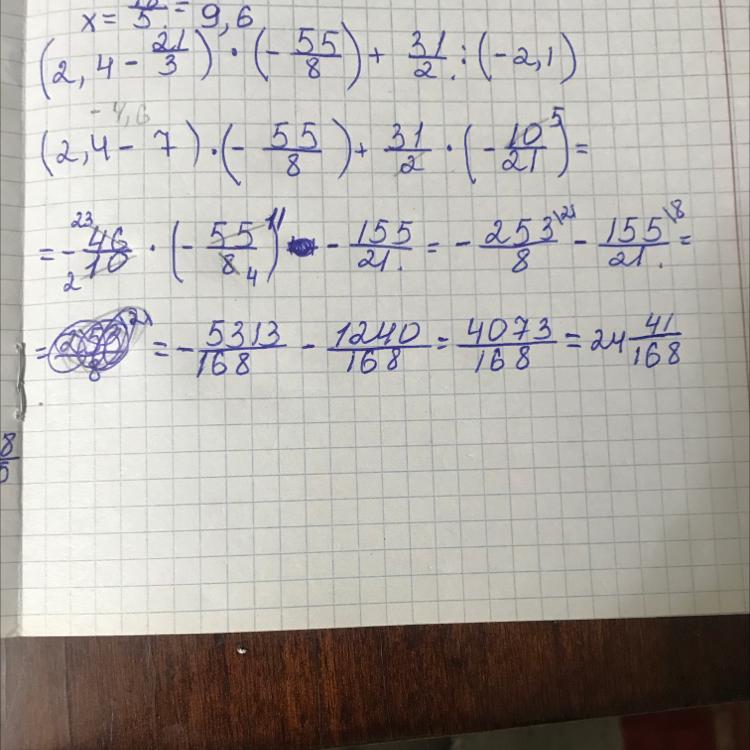 x = 10/5 = 9,6
(2,4 - 21/3) · (- 55/8) + 31/2 : (-2,1)
-4,6
(2,4 - 7) · (- 55/8) + 31/2 · (- 10/21) = 5
= - 46/10 · (- 55/8) - 155/21 = - 253/8 \21 - 155/21 \8 =
23 2 11 4
= - 5313/168 - 1240/168 = 4073/168 = 24 41/168
8/5